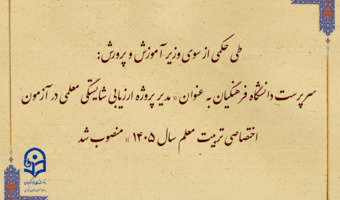 طی حکمی از سوی وزیر آموزش و پرورش:
سرپرست دانشگاه فرهنگیان به عنوان «مدیر پروژه ارزیابی شایستگی معلمی در آزمون
اختصاصی تربیت معلم سال ۱۴۰۵» منصوب شد